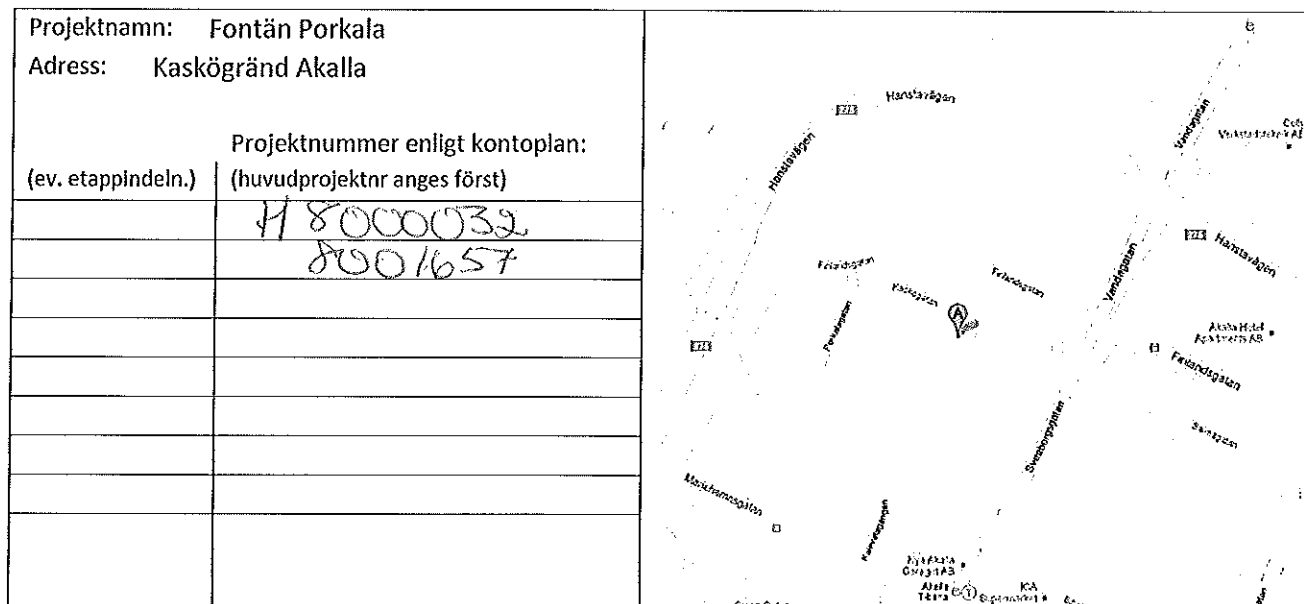 Projektnamn: Fontän Porkala
Adress: Kaskögränd Akalla
Projektnummer enligt kontoplan:
(ev. etappindeln.) (huvudprojektnr anges först)
H 8000032
8001657
Hanstavägen
Hanstavägen
Vandagatan
275
Hanstavägen
Finlandsgatan
Kaskögatan
Finlandsgatan
Vandagatan
Porkalagatan
A
Akalla Hotel
Apartments AB
Finlandsgatan
Sveaborgsgatan
Saimagatan
Mariehamnsgatan
Kalevalagången
ICA
Supermarket
T